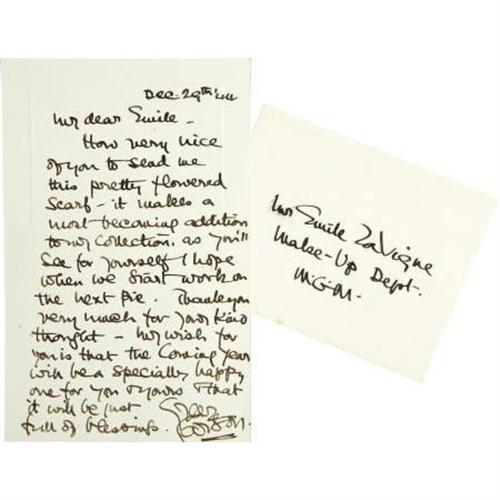 Dec. 29th
My dear Emile -
How very nice
of you to send me
this pretty flowered
scarf - it makes a
most becoming addition
to my collection, as you'll
see for yourself I hope
when we start work on
the next pic. Thank you
very much for your kind
thought - my wish for
you is that the coming year
will be a specially happy
one for you & yours & that
it will be just
full of blessings.
Greer
Garson.
Mr Emile LaVigne
Make-Up Dept.
M.G.M.